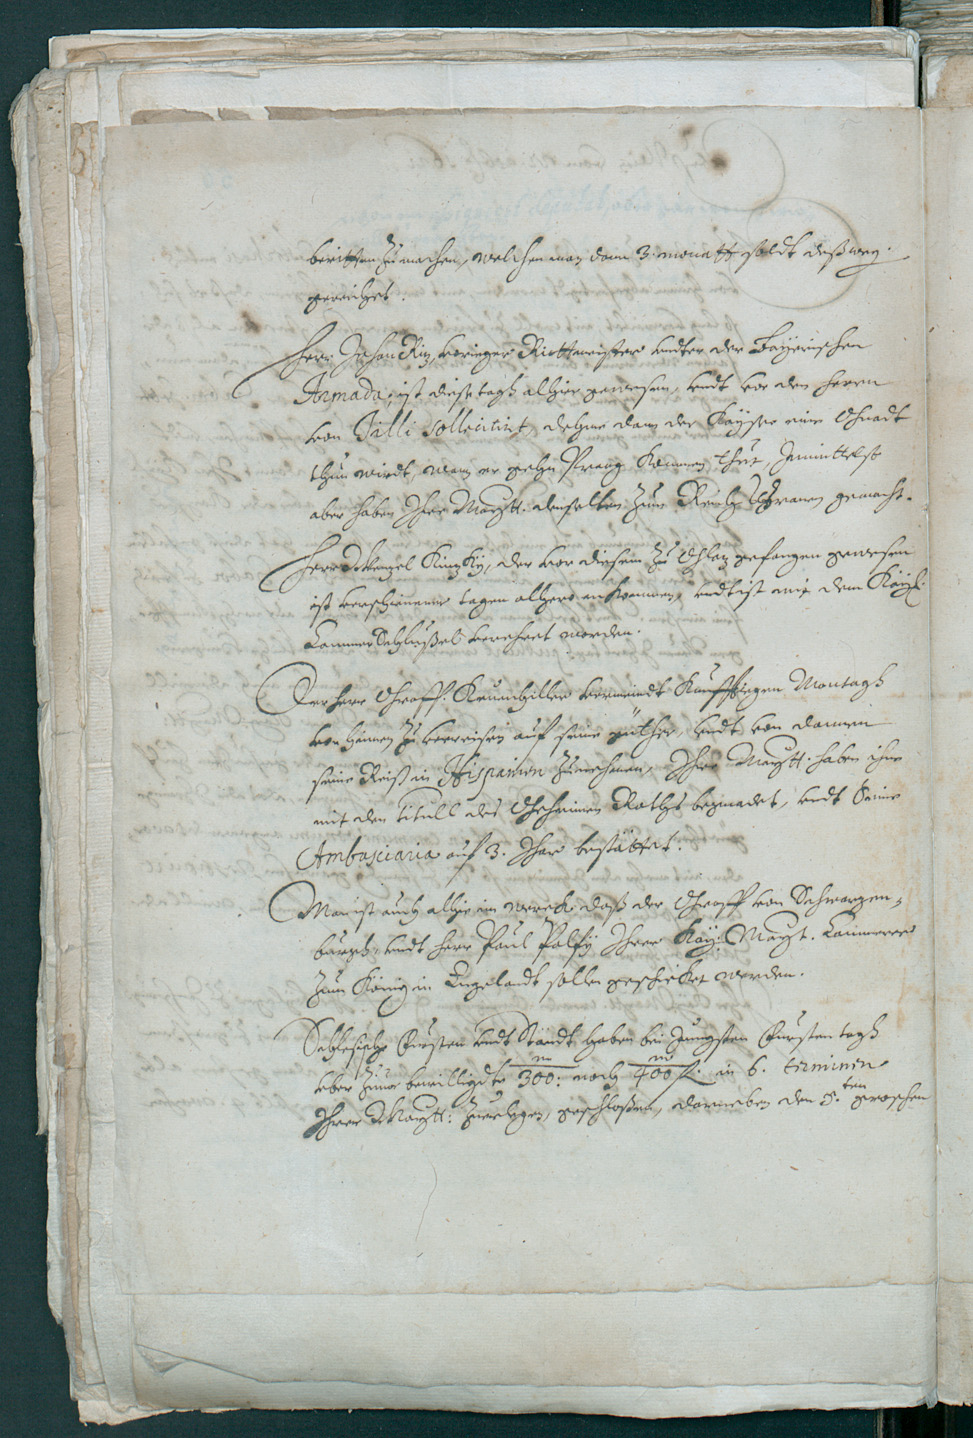 beritten zu machen, welchen man dann 3. monatt soldt deßweg.
gereichet.
Herr Johan Rin, voriger Rittmeister under der Bayerischen
Armada, ist diese tagh alhier gewesen, undt vor den herrn
von Tilli sollicitirt, dehme dann der Kayser eine Gnadt
thun wirdt, wann er gehn Praag kommen thut, Inmittelst
aber haben Ihre Maytt. denselben zum Reichs Graven gemacht.
Herr Wenzel Kinzky, der vor diesem zu Glatz gefangen gewesen
ist verschienener tagen alhero ankommen, undt ist mit dem Kay:
Cammer Schlüßel verehret worden.
Der herr Graff Keuenhiller vermeindt künfftigen Montagh
von hinnen zu verreisen auf seine güther, undt von dannen
seine Reiß in Hispanien zunehmen, Ihre Maytt. haben ihn
mit den titull des Geheimen Raths begnadet, undt seine
Ambasciaria auf 3. Jhar bestättet.
Man ist auch alhie im werck, daß der Graff von Schwarzen-
burgh, undt herr Paul Palfy Ihrer Kay: Mayt. Cammerer
zum König in Engelandt sollen geschicket werden.
Schlesische Fürsten undt Ständt haben bei Jüngsten Fürstentagh
uber zuvor bewilligdte 300. noch 400 fl. in 6. terminen
Ihrer Maytt: zuerlegen, geschloßen, darneben den 5.ten groschen